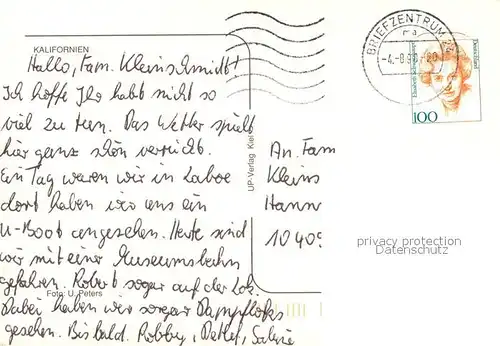 KALIFORNIEN
Hallo, Fam. Kleinschmidt!
Ich hoffe Ihr habt nicht so
viel zu tun. Das Wetter spielt
hier ganz schön verrückt.
Ein Tag waren wir in Laboe
dort haben wir uns ein
U-Boot angesehen. Heute sind
wir mit einer Museumsbahn
gefahren. Robert sogar auf der Lok.
Foto: U. Peters
Dabei haben wir sogar Dampfloks
gesehen. Bis bald. Robby, Detlef, Sabine
UP-Verlag Kiel
BRIEFZENTRUM 24
ma
-4.-8.9
-20
Deutschland
Elisabeth Schwarzhaupt
100
An Fam
Kleins
Hann
privacy protection
Datenschutz